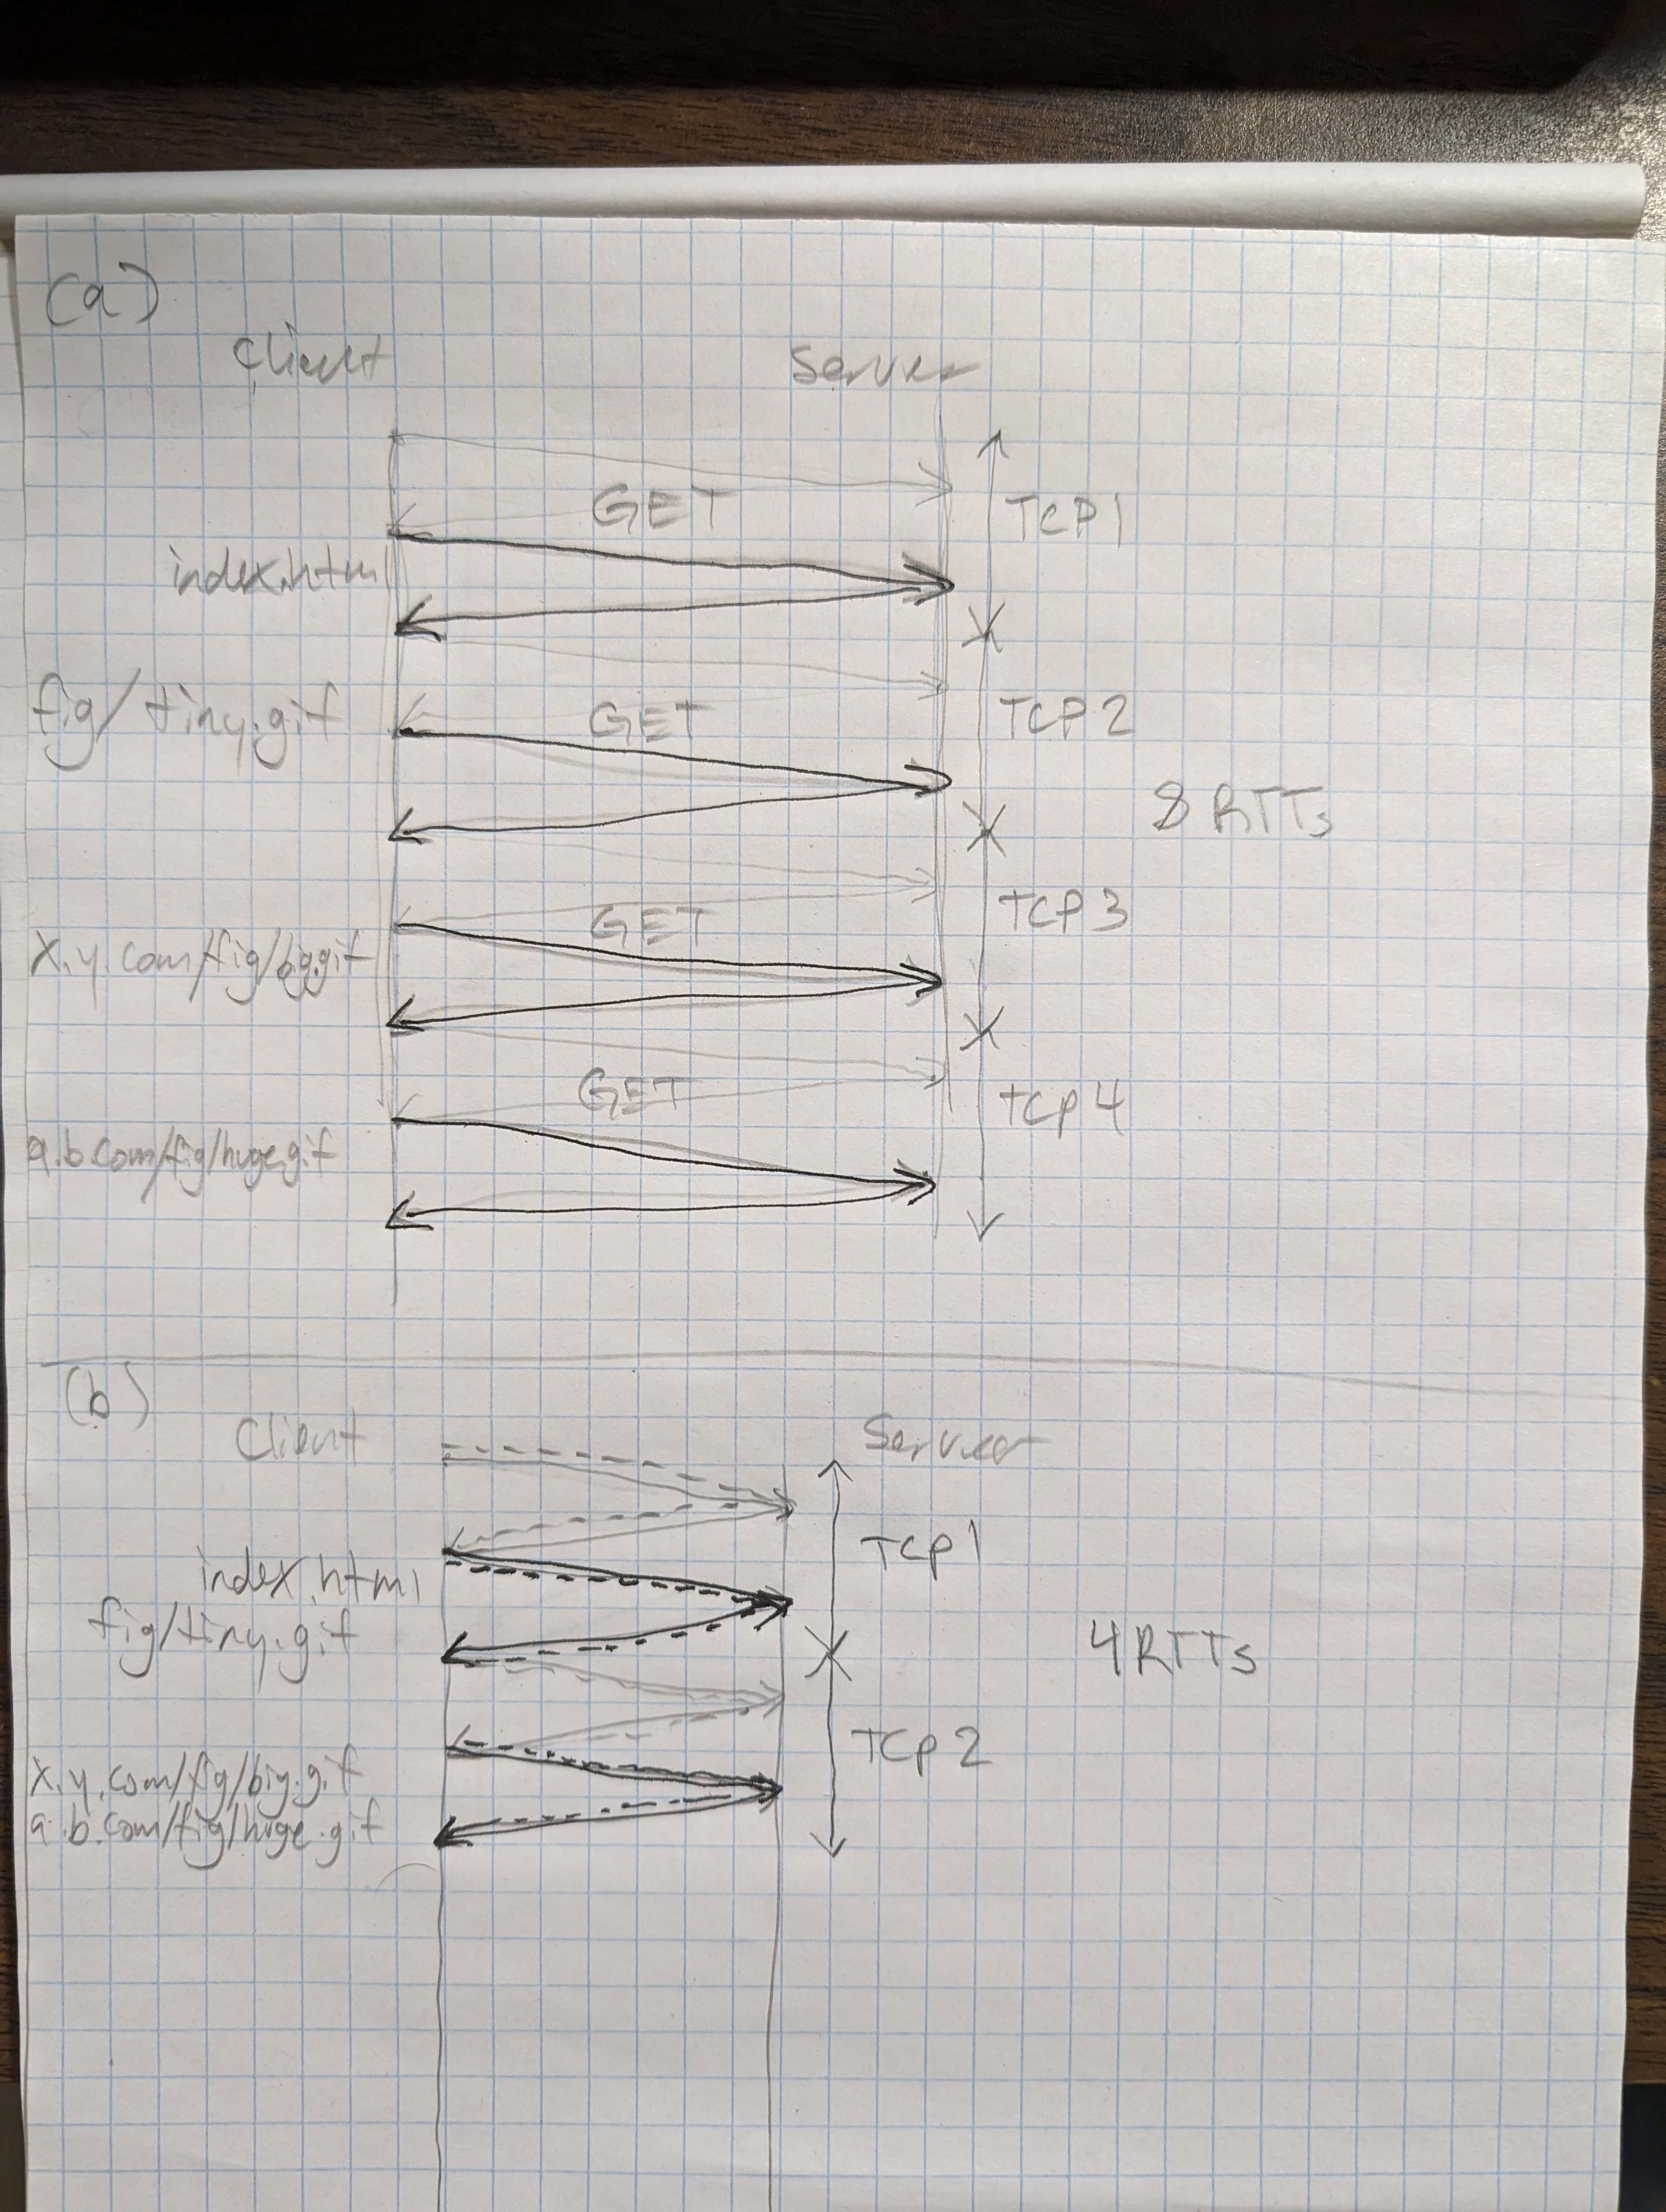 (a)
Client Server
GET
TCP1
index.html
fig/tiny.gif
GET
TCP2
8 RTTs
GET
TCP3
x.y.com/fig/big.gif
GET
TCP4
a.b.com/fig/huge.gif
(b)
Client Server
TCP1
index.html
fig/tiny.gif
4 RTTs
TCP2
x.y.com/fig/big.gif
a.b.com/fig/huge.gif